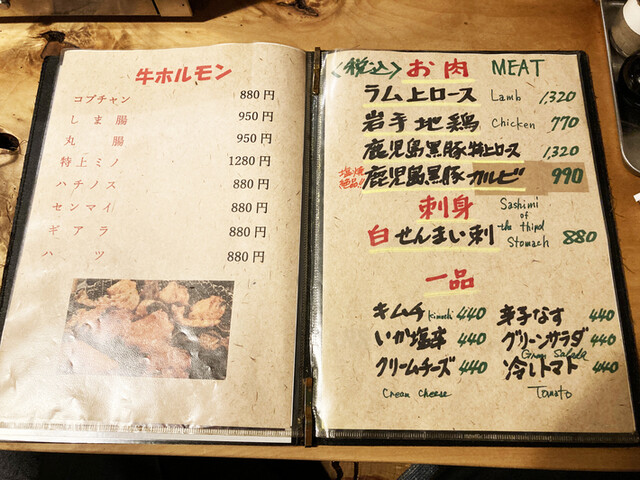 牛ホルモン
コブチャン 880円
しま腸 950円
丸腸 950円
特上ミノ 1280円
ハチノス 880円
センマイ 880円
ギアラ 880円
ハツ 880円
<税込> お肉 MEAT
ラム上ロース Lamb 1,320
岩手地鶏 Chicken 770
鹿児島黒豚特上ロース 1,320
塩焼絶品!! 鹿児島黒豚カルビ 990
刺身 Sashimi of the third Stomach
白せんまい刺 880
一品
キムチ Kimuchi 440 辛子なす 440
いか塩辛 440 グリーンサラダ 440
Green Salade
クリームチーズ 440 冷しトマト 440
Cream cheese Tomato